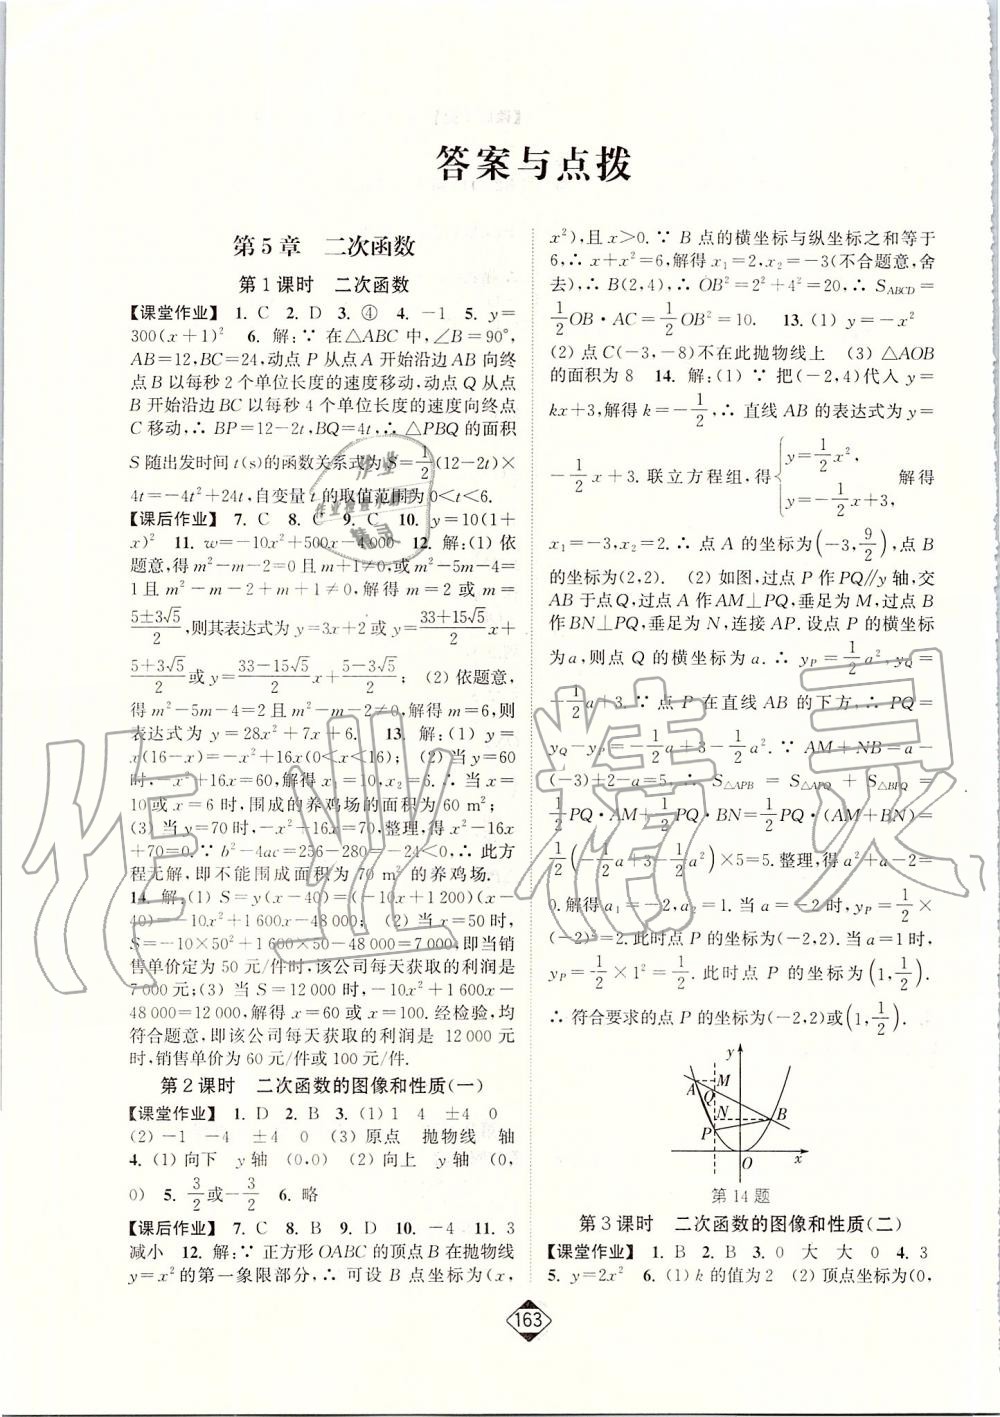 答案与点拨
第5章 二次函数
第1课时 二次函数
【课堂作业】 1. C 2. D 3. ④ 4. －1 5. y=
300(x+1)² 6. 解:∵ 在△ABC中,∠B=90°,
AB=12,BC=24,动点P从点A开始沿边AB向终
点B以每秒2个单位长度的速度移动,动点Q从点
B开始沿边BC以每秒4个单位长度的速度向终点
C移动,∴ BP=12－2t,BQ=4t,∴ △PBQ的面积
S随出发时间t(s)的函数关系式为S=1/2(12－2t)×
4t=－4t²+24t,自变量t的取值范围为0<t<6.
【课后作业】 7. C 8. C 9. C 10. y=10(1+
x)² 11. w=－10x²+500x－4000 12. 解:(1) 依
题意,得m²－m－2=0且m+1≠0,或m²－5m－4=
1且m²－m－2+m+1≠0,解得m=2或m=
(5±3√5)/2,则其表达式为y=3x+2或y=(33+15√5)/2 x+
(5+3√5)/2或y=(33－15√5)/2 x+(5－3√5)/2; (2) 依题意,
得m²－5m－4=2且m²－m－2≠0,解得m=6,则
表达式为y=28x²+7x+6. 13. 解:(1) y=
x(16－x)=－x²+16x(0<x<16); (2) 当y=60
时,－x²+16x=60,解得x₁=10,x₂=6.∴ 当x=
10或x=6时,围成的养鸡场的面积为60 m²;
(3) 当y=70时,－x²+16x=70,整理,得x²－16x
+70=0.∵ b²－4ac=256－280=－24<0,∴ 此方
程无解,即不能围成面积为70 m²的养鸡场.
14. 解:(1) S=y(x－40)=(－10x+1200)(x－
40)=－10x²+1600x－48000; (2) 当x=50时,
S=－10×50²+1600×50－48000=7000,即当销
售单价定为50元/件时,该公司每天获取的利润是
7000元;(3) 当S=12000时,－10x²+1600x－
48000=12000,解得x=60或x=100.经检验,均
符合题意,即该公司每天获取的利润是12000元
时,销售单价为60元/件或100元/件.
第2课时 二次函数的图像和性质(一)
【课堂作业】 1. D 2. B 3. (1) 1 4 ±4 0
(2) －1 －4 ±4 0 (3) 原点 抛物线 轴
4. (1) 向下 y轴 (0,0) (2) 向上 y轴 (0,
0) 5. 3/2或－3/2 6. 略
【课后作业】 7. C 8. B 9. D 10. －4 11. 3
减小 12. 解:∵ 正方形OABC的顶点B在抛物线
y=x²的第一象限部分,∴ 可设B点坐标为(x,
x²),且x>0.∵ B点的横坐标与纵坐标之和等于
6,∴ x+x²=6,解得x₁=2,x₂=－3(不合题意,舍
去),∴ B(2,4),∴ OB²=2²+4²=20,∴ S_ABCD=
1/2OB·AC=1/2OB²=10. 13. (1) y=－x²
(2) 点C(－3,－8)不在此抛物线上 (3) △AOB
的面积为8 14. 解:(1) ∵ 把(－2,4)代入y=
kx+3,解得k=－1/2,∴ 直线AB的表达式为y=
－1/2x+3.联立方程组,得{y=1/2x², y=－1/2x+3, 解得
x₁=－3,x₂=2.∴ 点A的坐标为(－3,9/2),点B
的坐标为(2,2). (2) 如图,过点P作PQ∥y轴,交
AB于点Q,过点A作AM⊥PQ,垂足为M,过点B
作BN⊥PQ,垂足为N,连接AP.设点P的横坐标
为a,则点Q的横坐标为a.∴ y_P=1/2a²,y_Q=
－1/2a+3.∵ 点P在直线AB的下方,∴ PQ=
y_Q－y_P=－1/2a+3－1/2a².∵ AM+NB=a－
(－3)+2－a=5.∴ S△APB = S△APQ + S△BPQ =
1/2PQ·AM+1/2PQ·BN=1/2PQ·(AM+BN)=
1/2(－1/2a+3－1/2a²)×5=5.整理,得a²+a－2=
0.解得a₁=－2,a₂=1.当a=－2时,y_P=1/2×
(－2)²=2.此时点P的坐标为(－2,2).当a=1时,
y_P=1/2×1²=1/2.此时点P的坐标为(1,1/2).
∴ 符合要求的点P的坐标为(－2,2)或(1,1/2).
y
A M
Q
N B
P
O x
第14题
第3课时 二次函数的图像和性质(二)
【课堂作业】 1. B 2. B 3. 0 大 大 0 4. 3
5. y=2x² 6. (1) k的值为2 (2) 顶点坐标为(0,
163
作业精灵